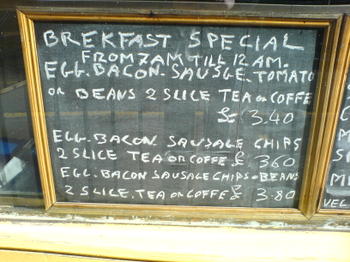 BREKFAST SPECIAL
FROM 7AM TILL 12 AM.
EGG. BACON. SAUSGE. TOMATO
OR BEANS 2 SLICE TEA OR COFFE
£ 3.40
EGG. BACON SAUSAGE CHIPS
2 SLICE TEA OR COFFE £ 3.60
EGG. BACON SAUSAGE CHIPS. BEANS
2 SLICE. TEA OR COFFE £ 3.80